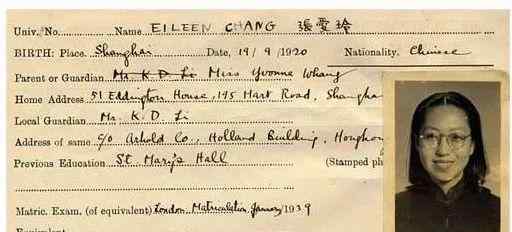 Univ. No. Name EILEEN CHANG 張愛玲
BIRTH: Place. Shanghai Date, 19 / 9 / 1920 Nationality. Chinese
Parent or Guardian Mr. K. D. Li Miss Yvonne Whang
Home Address 51 Eddington House, 195 Hart Road, Shangha
Local Guardian Mr. K. D. Li
Address of same c/o Arnhold Co., Holland Building, Hongkon
Previous Education St. Mary's Hall (Stamped ph
Matric. Exam. (of equivalent) London Matriculation January 1939